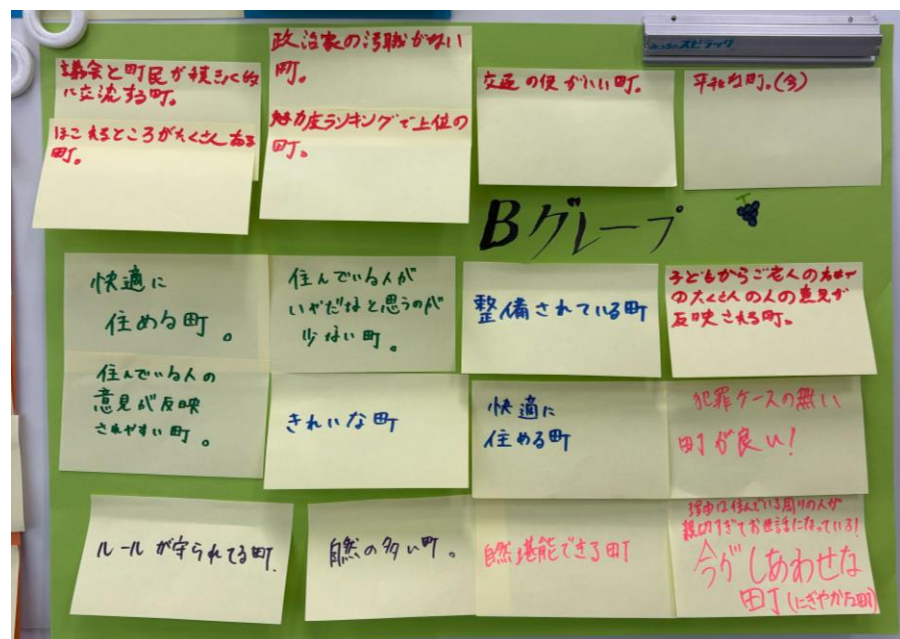 議会と町民が積きょく的
に交流する町。
ほこれるところがたくさんある
町。
政治家の汚職がない
町。
魅力度ランキングで上位の
町。
交通の便がいい町。
平和な町。(今)
Bグループ
快適に
住める町。
住んでいる人が
いやだなと思うのが
少ない町。
整備されている町
子どもからご老人の方まで
のたくさんの人の意見が
反映される町。
住んでいる人の
意見が反映
されやすい町。
きれいな町
快適に
住める町
犯罪ケースの無い
町が良い!
ルールが守られてる町.
自然の多い町。
自然堪能できる町
理由は住んでいる周りの人が
親切すぎてお世話になっている!
今がしあわせな
町(にぎやかな町)
スピラック